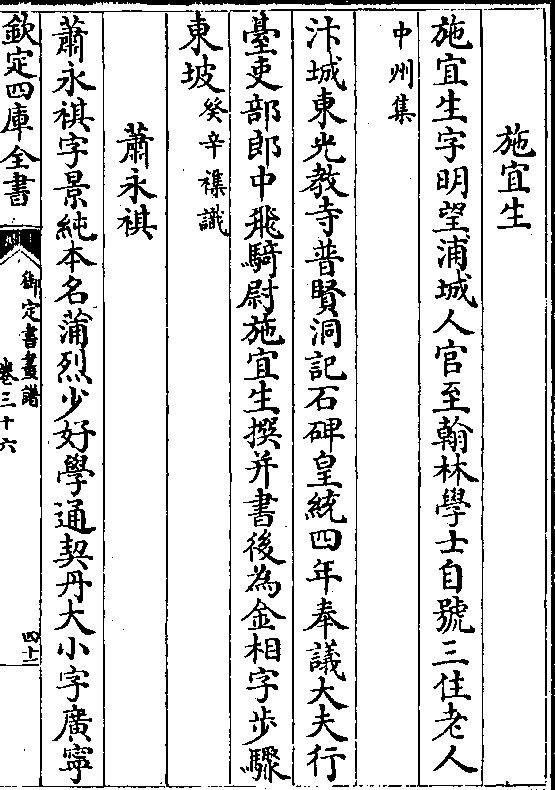 施宜生
施宜生字明望浦城人官至翰林學士自號三住老人
中州集
汴城東光教寺普賢洞記石碑皇統四年奉議大夫行
臺吏部郎中飛騎尉施宜生撰并書後為金相字步驟
東坡癸辛襍識
蕭永祺
蕭永祺字景純本名蒲烈少好學通契丹大小字廣寧
欽定四庫全書
御定書畫譜
卷三十六
四十二